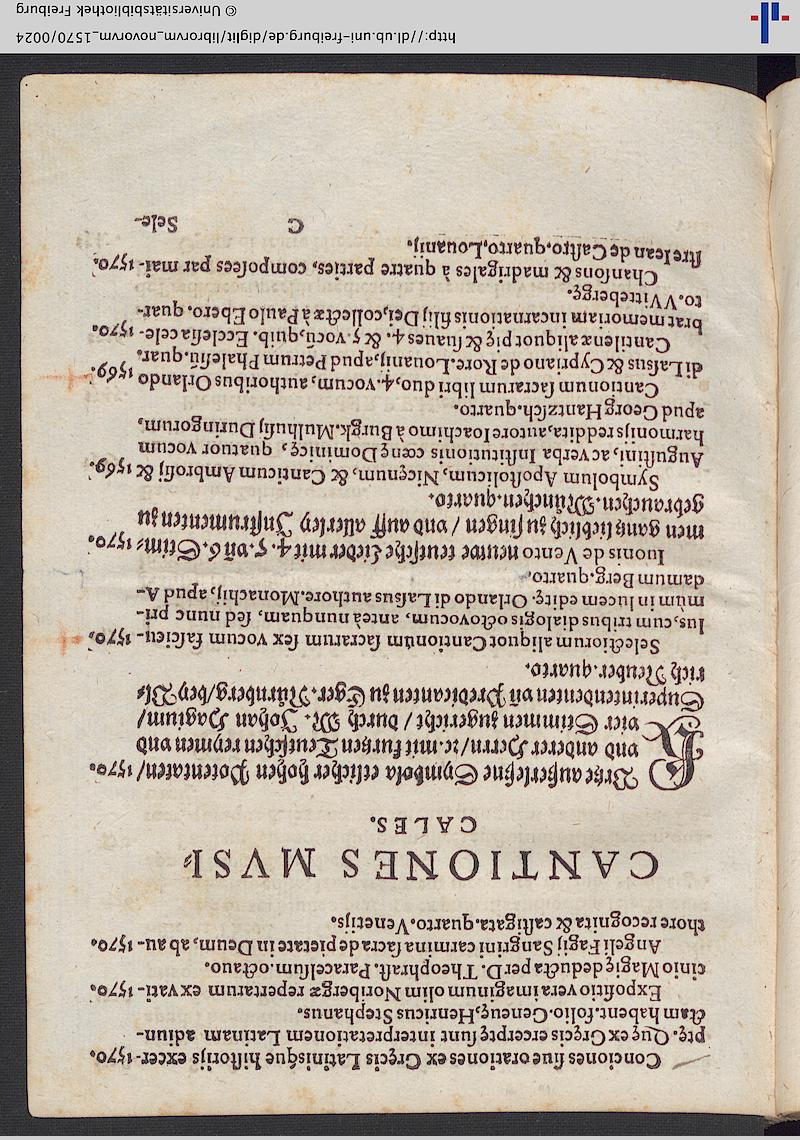 Conciones siue orationes ex Gręcis Latinisque historijs excer- 1570.
ptę. Quę ex Gręcis excerptę sunt interpretationem Latinam adiun-
ctam habent. folio. Geneuę, Henricus Stephanus.
Expositio vera imaginum olim Noribergæ repertarum ex vati- 1570.
cinio Magię deducta per D. Theophrast. Paracelsum. octauo.
Angeli Fagij Sangrini carmina sacra de pietate in Deum, ab au- 1570.
thore recognita & castigata. quarto. Venetijs.
CANTIONES MVSI-
CALES.
Kurtze außerleßne Symbola etlicher hohen Potentaten / 1570.
vnd anderer Herrn / ꝛc. mit kurtzen Teutschen reymen vnd
vier Stimmen zugericht / durch M. Johan Hagium /
Superintendenten vñ Predicanten zu Eger. Nürnberg / bey Vl-
rich Neuber. quarto.
Selectiorum aliquot Cantionum sacrarum sex vocum fascicu- 1570.
lus, cum tribus dialogis octo vocum, anteà nunquam, sed nunc pri-
mùm in lucem editę. Orlando di Lassus authore. Monachij, apud A-
damum Berg. quarto.
Iuonis de Vento neuwe teutsche Lieder mit 4. 5. vñ 6. Stim- 1570.
men gantz lieblich zu singen / vnd auff allerley Instrumenten zu
gebrauchen. München. quarto.
Symbolum Apostolicum, Nicęnum, & Canticum Ambrosij & 1569.
Augustini, ac verba Institutionis cœnę Dominicę, quatuor vocum
harmonijs reddita, autore Ioachimo à Burgk. Mulhusij Duringorum,
apud Georg Hantzsch. quarto.
Cantionum sacrarum libri duo, 4. vocum, authoribus Orlando 1569.
di Lassus & Cypriano de Rore. Louanij, apud Petrum Phalesiũ. quar.
Cantilenæ aliquot pię & suaues 4. & 5. vocũ, quib. Ecclesia cele- 1570.
brat memoriam incarnationis filij Dei, collectæ à Paulo Ebero. quar-
to. VVittebergę.
Chansons & madrigales à quatre parties, composees par mai- 1570.
stre Iean de Castro. quarto. Louanij.
C Sele-
http://dl.ub.uni-freiburg.de/diglit/librorvm_novorvm_1570/0024
© Universitätsbibliothek Freiburg